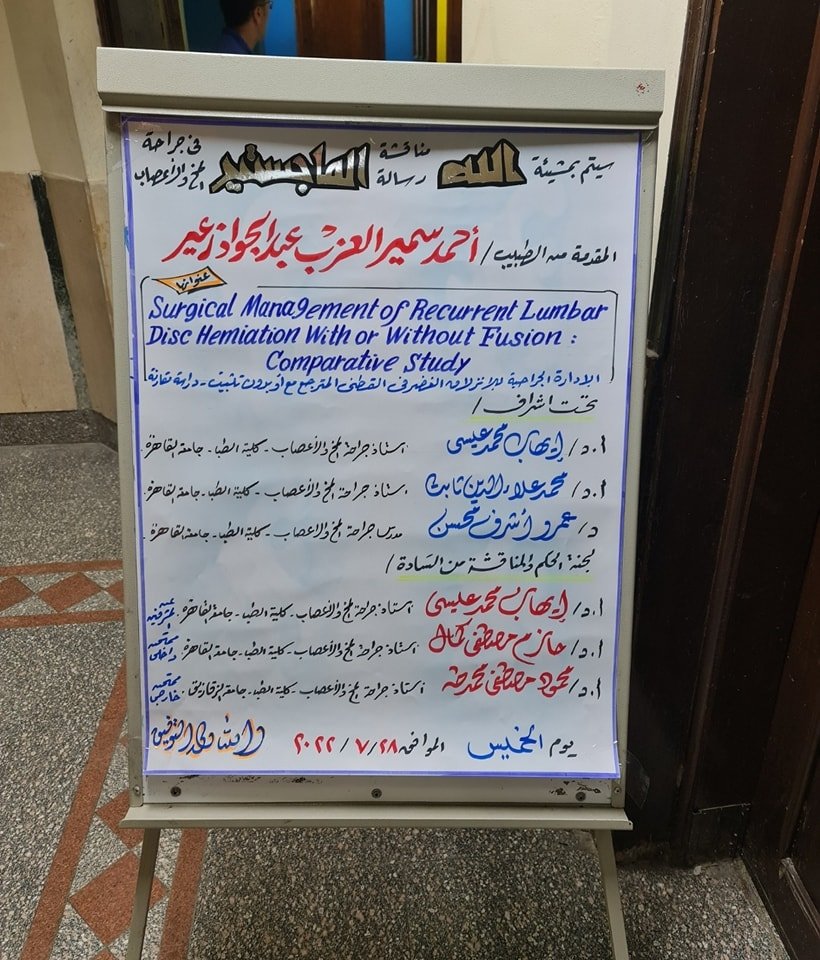 سيتم بمشيئة الله مناقشة رسالة الماجستير فى جراحة المخ والأعصاب
المقدمة من الطبيب / أحمد سمير العزب عبد الجواد زعير
عنوانها
Surgical Management of Recurrent Lumbar
Disc Hemiation With or Without Fusion :
Comparative Study
الإدارة الجراحية للإنزلاق الغضروفى القطنى المرتجع مع أو بدون تثبيت - دراسة مقارنة
تحت اشراف /
أ.د/ إيهاب محمد عيسى استاذ جراحة المخ والأعصاب - كلية الطب - جامعة القاهرة
أ.د/ محمد علاء الدين ثابت استاذ جراحة المخ والأعصاب - كلية الطب - جامعة القاهرة
د/ عمرو أشرف محسن مدرس جراحة المخ والأعصاب - كلية الطب - جامعة القاهرة
لجنة الحكم والمناقشة من السادة /
أ.د/ إيهاب محمد عيسى استاذ جراحة المخ والأعصاب - كلية الطب - جامعة القاهرة عن المشرفين
أ.د/ حازم مصطفى كمال استاذ جراحة المخ والأعصاب - كلية الطب - جامعة القاهرة ممتحن داخلى
أ.د/ محمود مصطفى محمد طه استاذ جراحة المخ والأعصاب - كلية الطب - جامعة الزقازيق ممتحن خارجى
يوم الخميس الموافق ٢٠٢٢/٧/٢٨ والله ولى التوفيق